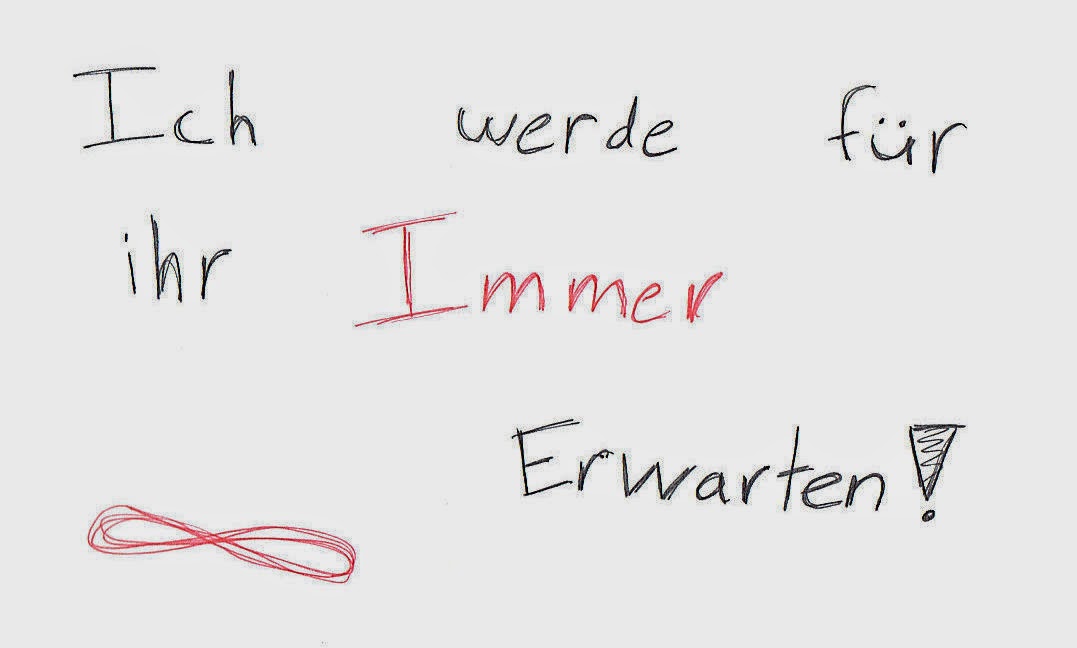 Ich werde für
ihr Immer
Erwarten!